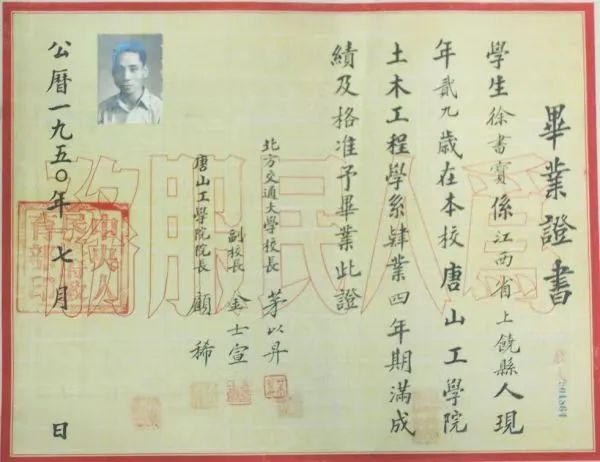 畢業證書
學生徐書實係江西省上饒縣人現
年貳九歲在本校唐山工學院
土木工程學系肄業四年期滿成
績及格准予畢業此證
北方交通大學校長 茅以昇
副校長 金士宣
唐山工學院院長 顧稀
公曆一九五〇年七月 日
為人民服務
中央人民政府教育部印